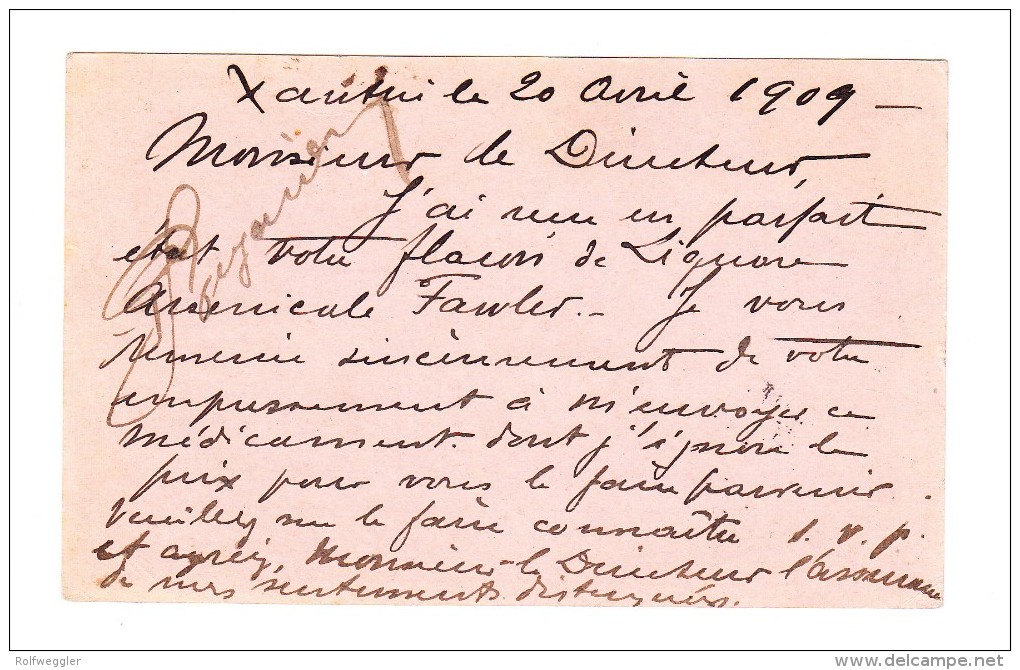 le 20 Avril 1909 —
Monsieur le Directeur,
J'ai reçu en parfait
état votre flacon de Liqueur
Arsenicale Fawler. — Je vous
remercie sincèrement de votre
empressement à m'envoyer ce
médicament dont j'ignore le
prix pour vous le faire parvenir.
Veuillez me le faire connaître s. v. p.
et agréez, Monsieur le Directeur l'assurance
de mes sentiments distingués.
Rolfweggler
delcampe.net